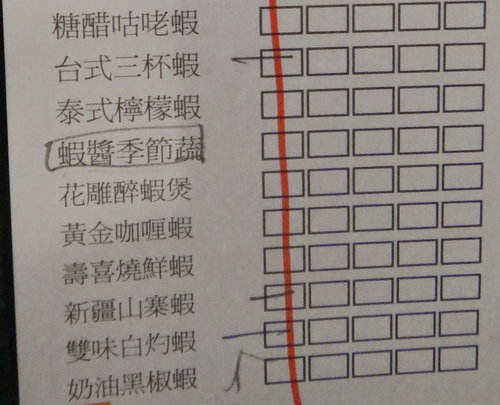 糖醋咕咾蝦
台式三杯蝦
泰式檸檬蝦
蝦醬季節蔬
花雕醉蝦煲
黃金咖喱蝦
壽喜燒鮮蝦
新疆山寨蝦
雙味白灼蝦
奶油黑椒蝦